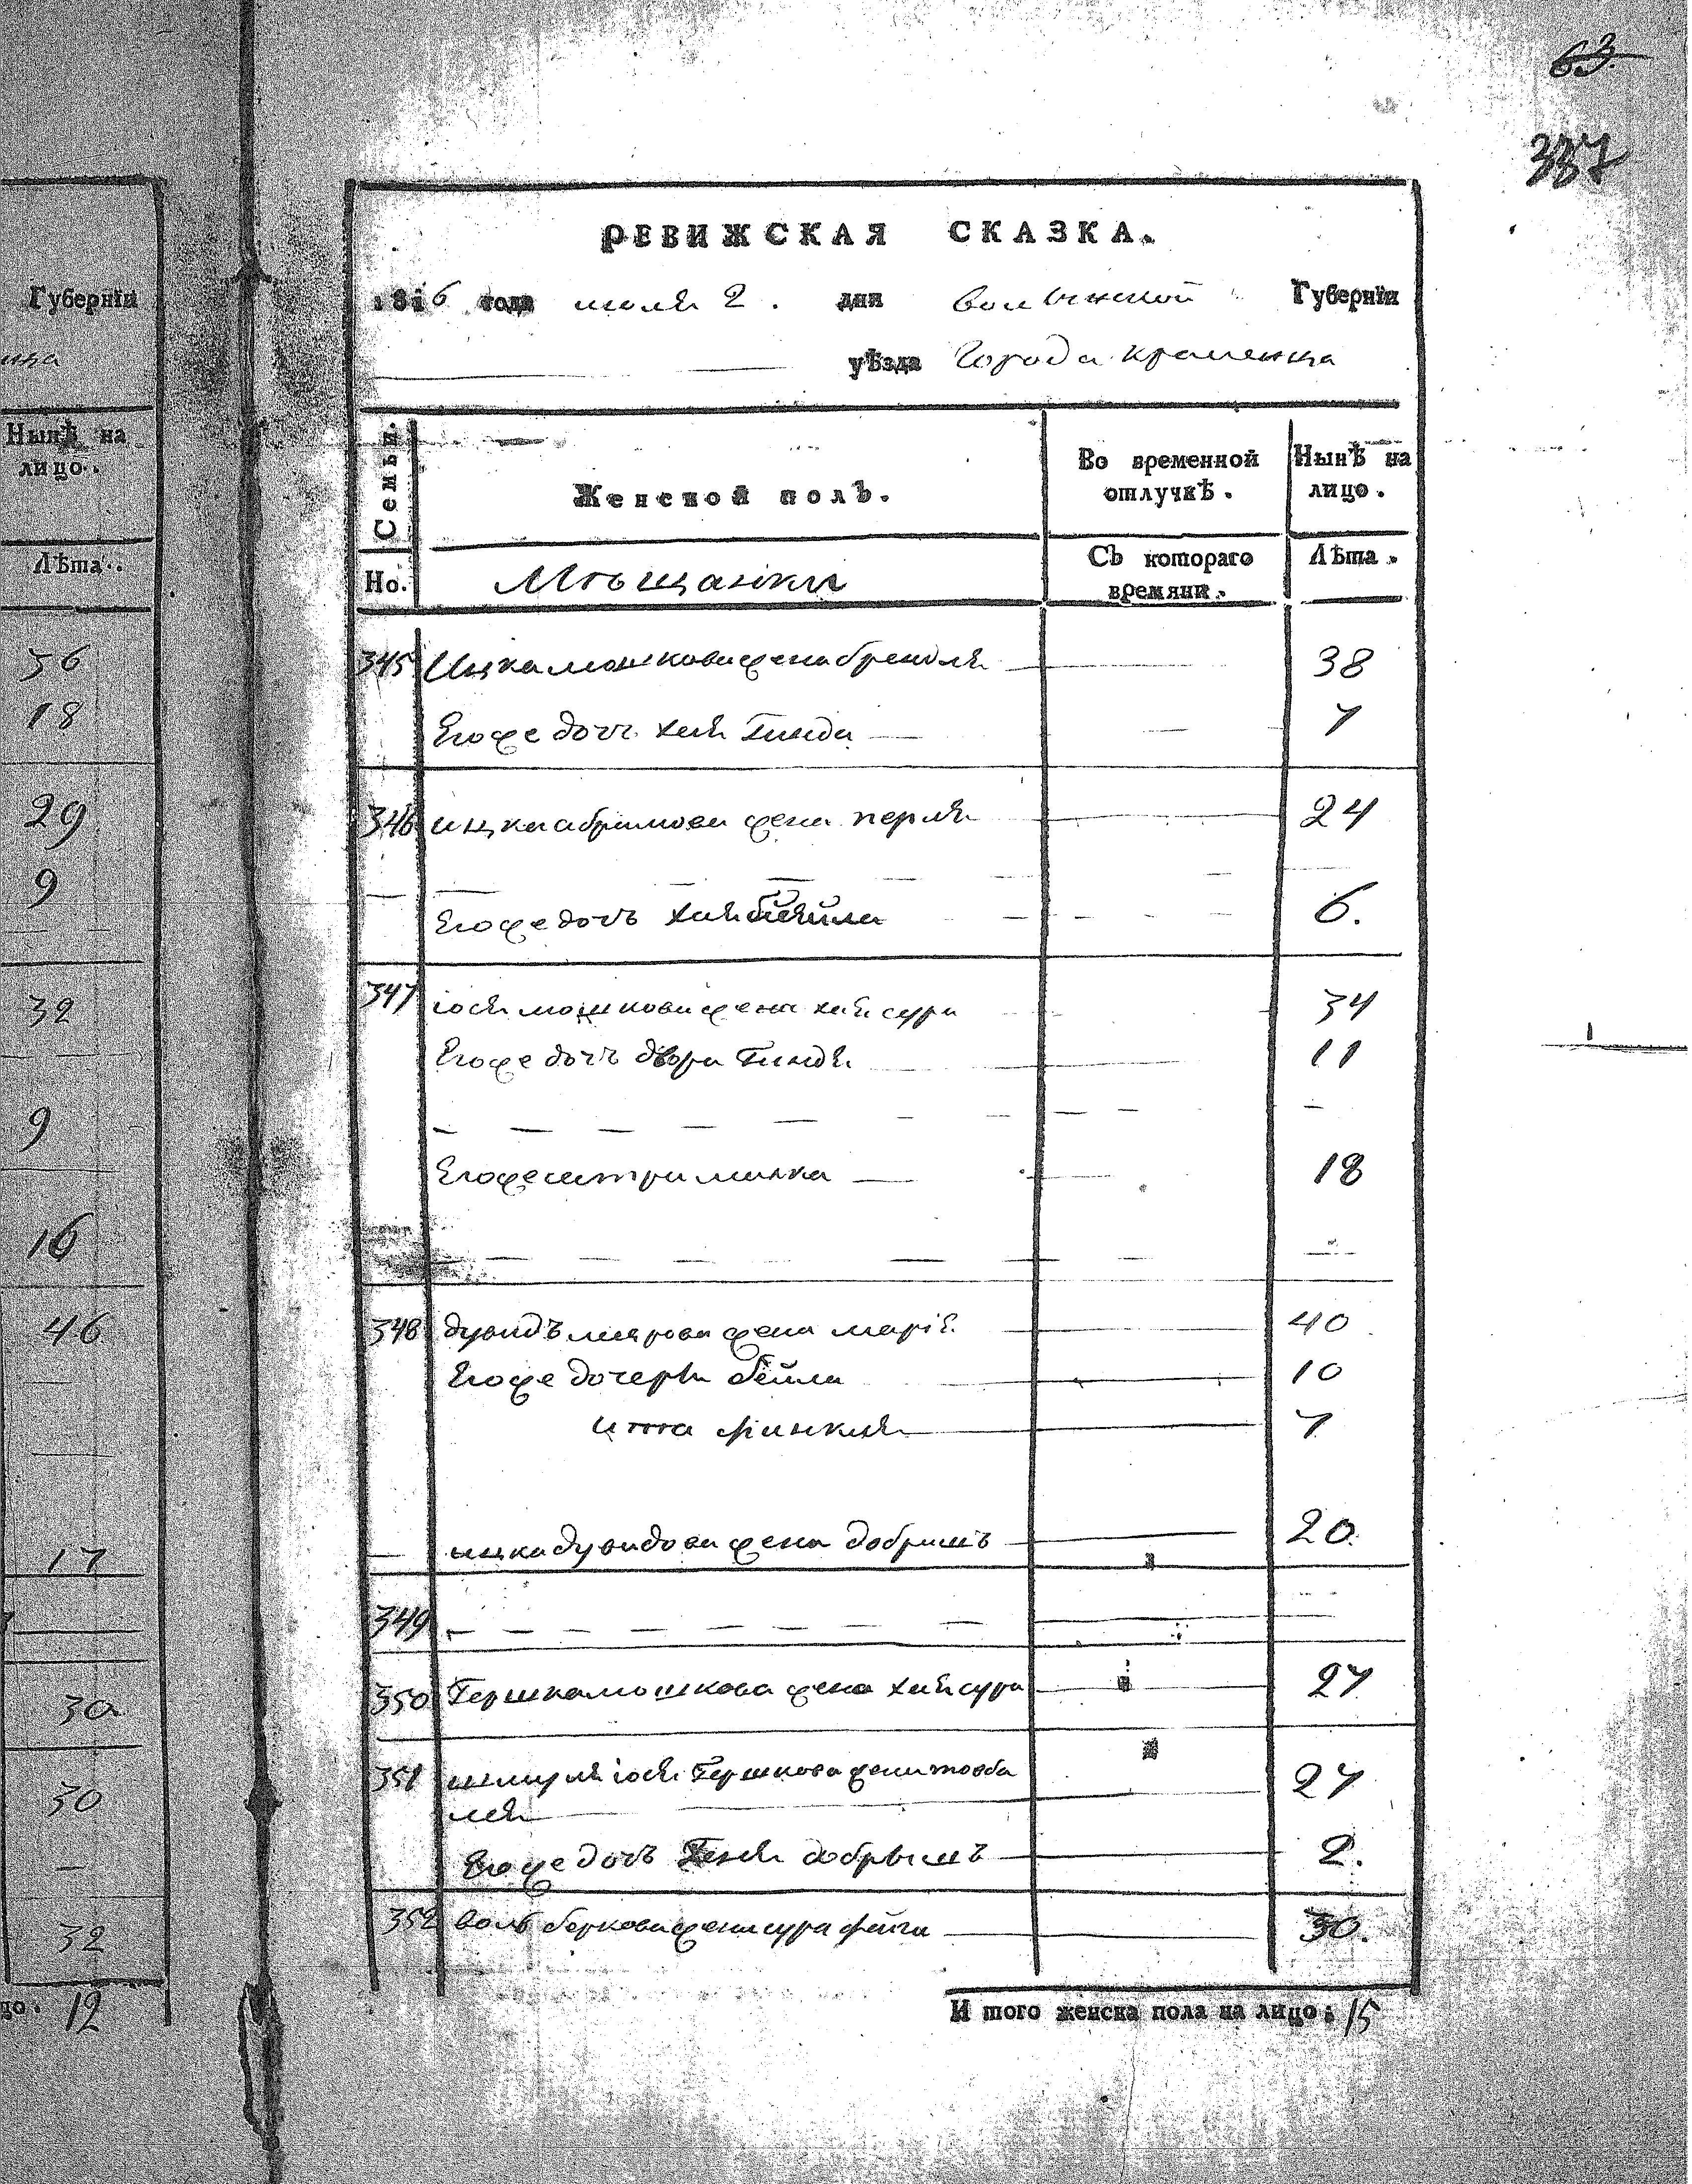 63.
337
Губернїи
ица
Нынѣ на
лицо.
Лѣта.
56
18
29
9
32
9
16
46
17
30
30
32
12
РЕВИЖСКАЯ СКАЗКА.
1816 года июля 2. дня волынской Губернїи
уѣзда Города кременца
Семьи.
Женской полъ.
Во временной отлучкѣ.
Нынѣ на лицо.
Но.
Мѣщанки
Съ котораго времяни.
Лѣта.
345 Ицка мошкова жена брендля 38
Егоже дочь хая Гинда 7
346 ицка абрамова жена перля 24
Егоже дочь хая бейла 6.
347 іося мошкова жена хая сура 34
Егоже дочь двора Гиндя 11
Егоже сестра минка 18
348 дувидъ меерова жена марія 40
Егоже дочери бейла 10
ита финкля 7
ицка дувидова жена добришъ 20.
349
350 Гершка мошкова жена хая сура 27
351 шмуля іося Гершкова жена товба 27
лея
Егоже дочь Геня добрышъ 2.
352 вольф беркова жена сура файга 30.
И того женска пола на лицо: 15